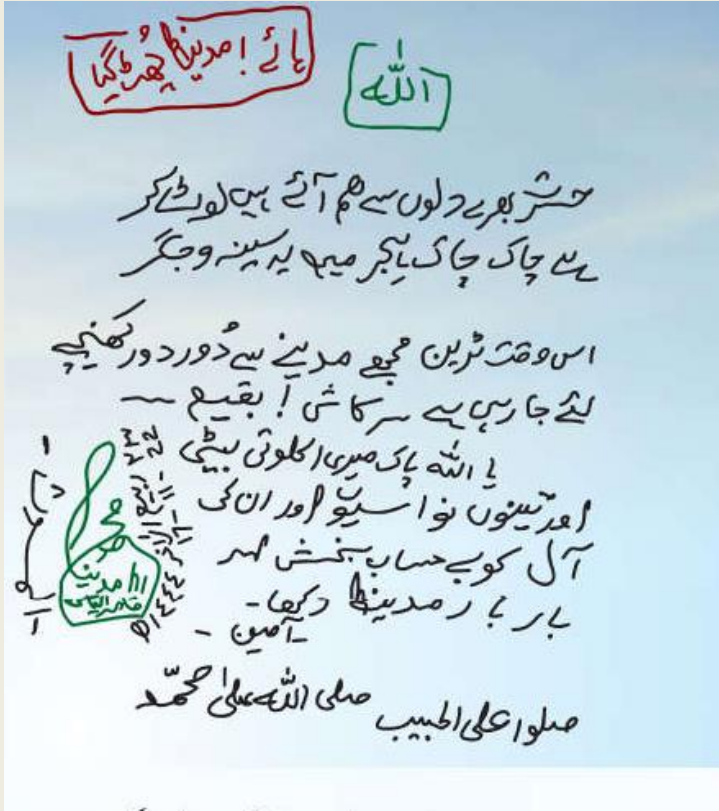 ہائے! مدینہ چھوٹ گیا
اللہ
حشر بھرے دلوں سے ہم آئے ہیں لوٹ کر
ہے چاک چاک ہجر میں یہ سینہ و جگر
اس وقت ٹرین مجھے مدینے سے دُور دور کھینچے
لئے جا رہی ہے کاش! بقیع
یا اللہ پاک میری اکلوتی بیٹی
اور تینوں نواسیوں اور ان کی
آل کو بے حساب بخش
بار بار مدینہ دکھا۔
آمین۔
صلوا علی الحبیب صلی اللہ علی محمّد